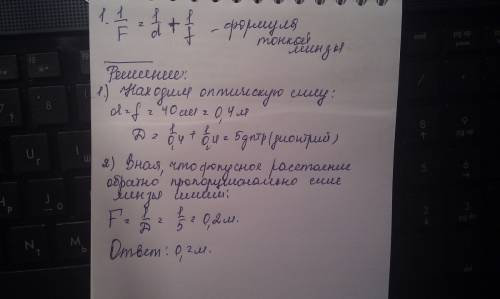 1. 1/F = 1/d + 1/f – формула
тонкой
линзы
Решение:
1) Находим оптическую силу:
d = f = 40 см = 0,4 м
D = 1/0,4 + 1/0,4 = 5 дптр (диоптрий)
2) Зная, что фокусное расстояние
обратно пропорционально силе
линзы имеем:
F = 1/D = 1/5 = 0,2 м.
Ответ: 0,2 м.